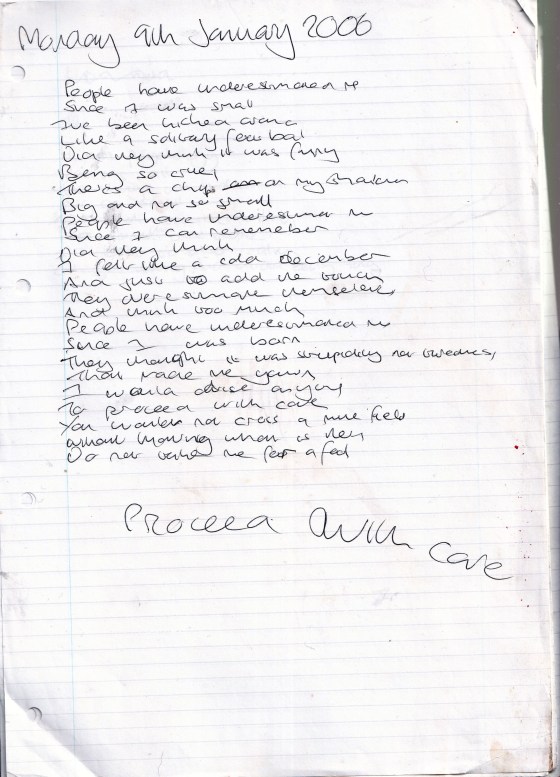 Monday 9th January 2006
People have underestimated me
Since I was small
I've been kicked around
Like a solitary football
Did they think it was funny
Being so cruel
There's a chip on my shoulder
Big and not so small
People have underestimated me
Since I can remember
Did they think
I felt like a cold december
And just to add the touch
They overestimate themselves
And think too much
People have underestimated me
Since I was born
They thought it was stupidity not
That made me yawn
I would advise anyone
To proceed with care
You wouldn't not cross a mine field
without knowing what is there
Do not take me for a fool
Proceed With Care